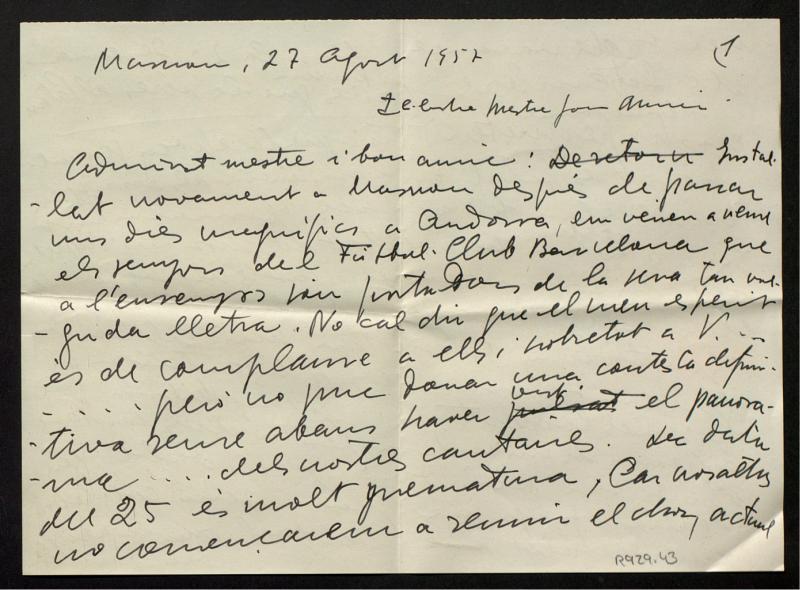 1
Masnou, 27 Agost 1957
Mestre Joan
Admirat mestre i bon amic: De retorn Instal.
-lat novament a Masnou després de passar
uns dies magnífics a Andorra, em venen a veure
els senyors del Fútbol Club Barcelona que
a l'ensemps són portadors de la seva tan vol-
-guda lletra. No cal dir que el meu esperit
és de complaure a ells i sobretot a V. ...
..... però no puc donar una contesta defini-
-tiva sense abans haver vist pulsat el panora-
-ma .... dels nostres cantaires. La data
del 25 és molt prematura, Car nosaltres
no començarem a reunir el chor, actune
R929.43